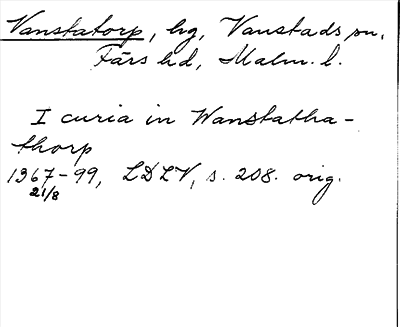 Vanstatorp, hg, Vanstads sn,
Färs hd, Malm. l.
I curia in Wanstatha-
thorp
1367-99, LDLV, s. 208. orig.
21/8